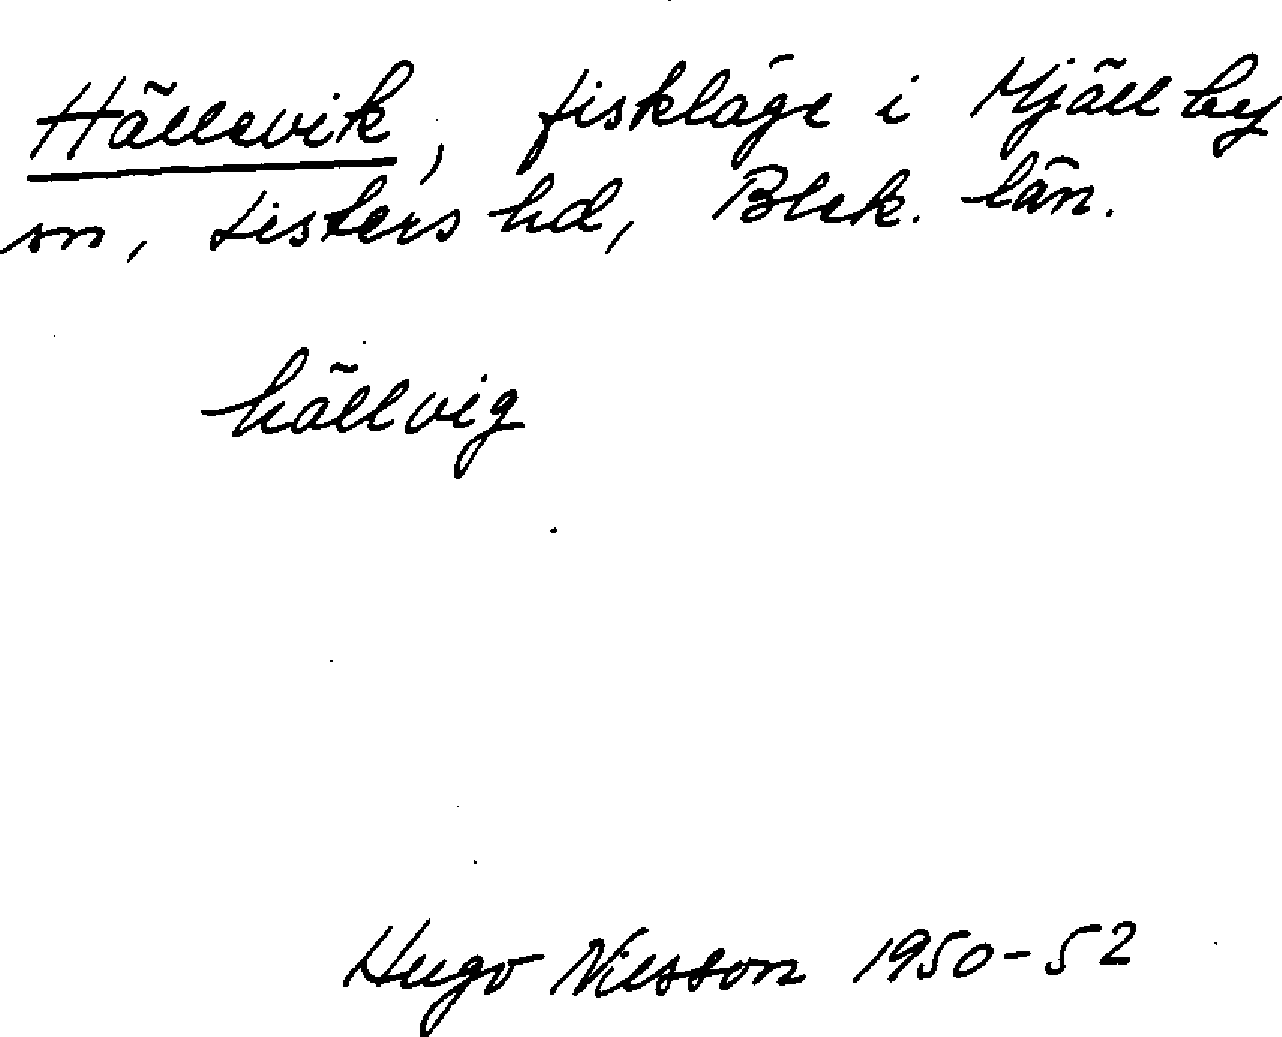 Hällevik, fiskläge i Mjällby
sn, Listers hd, Blek. län.
hällvig
Hugo Nilsson 1950-52